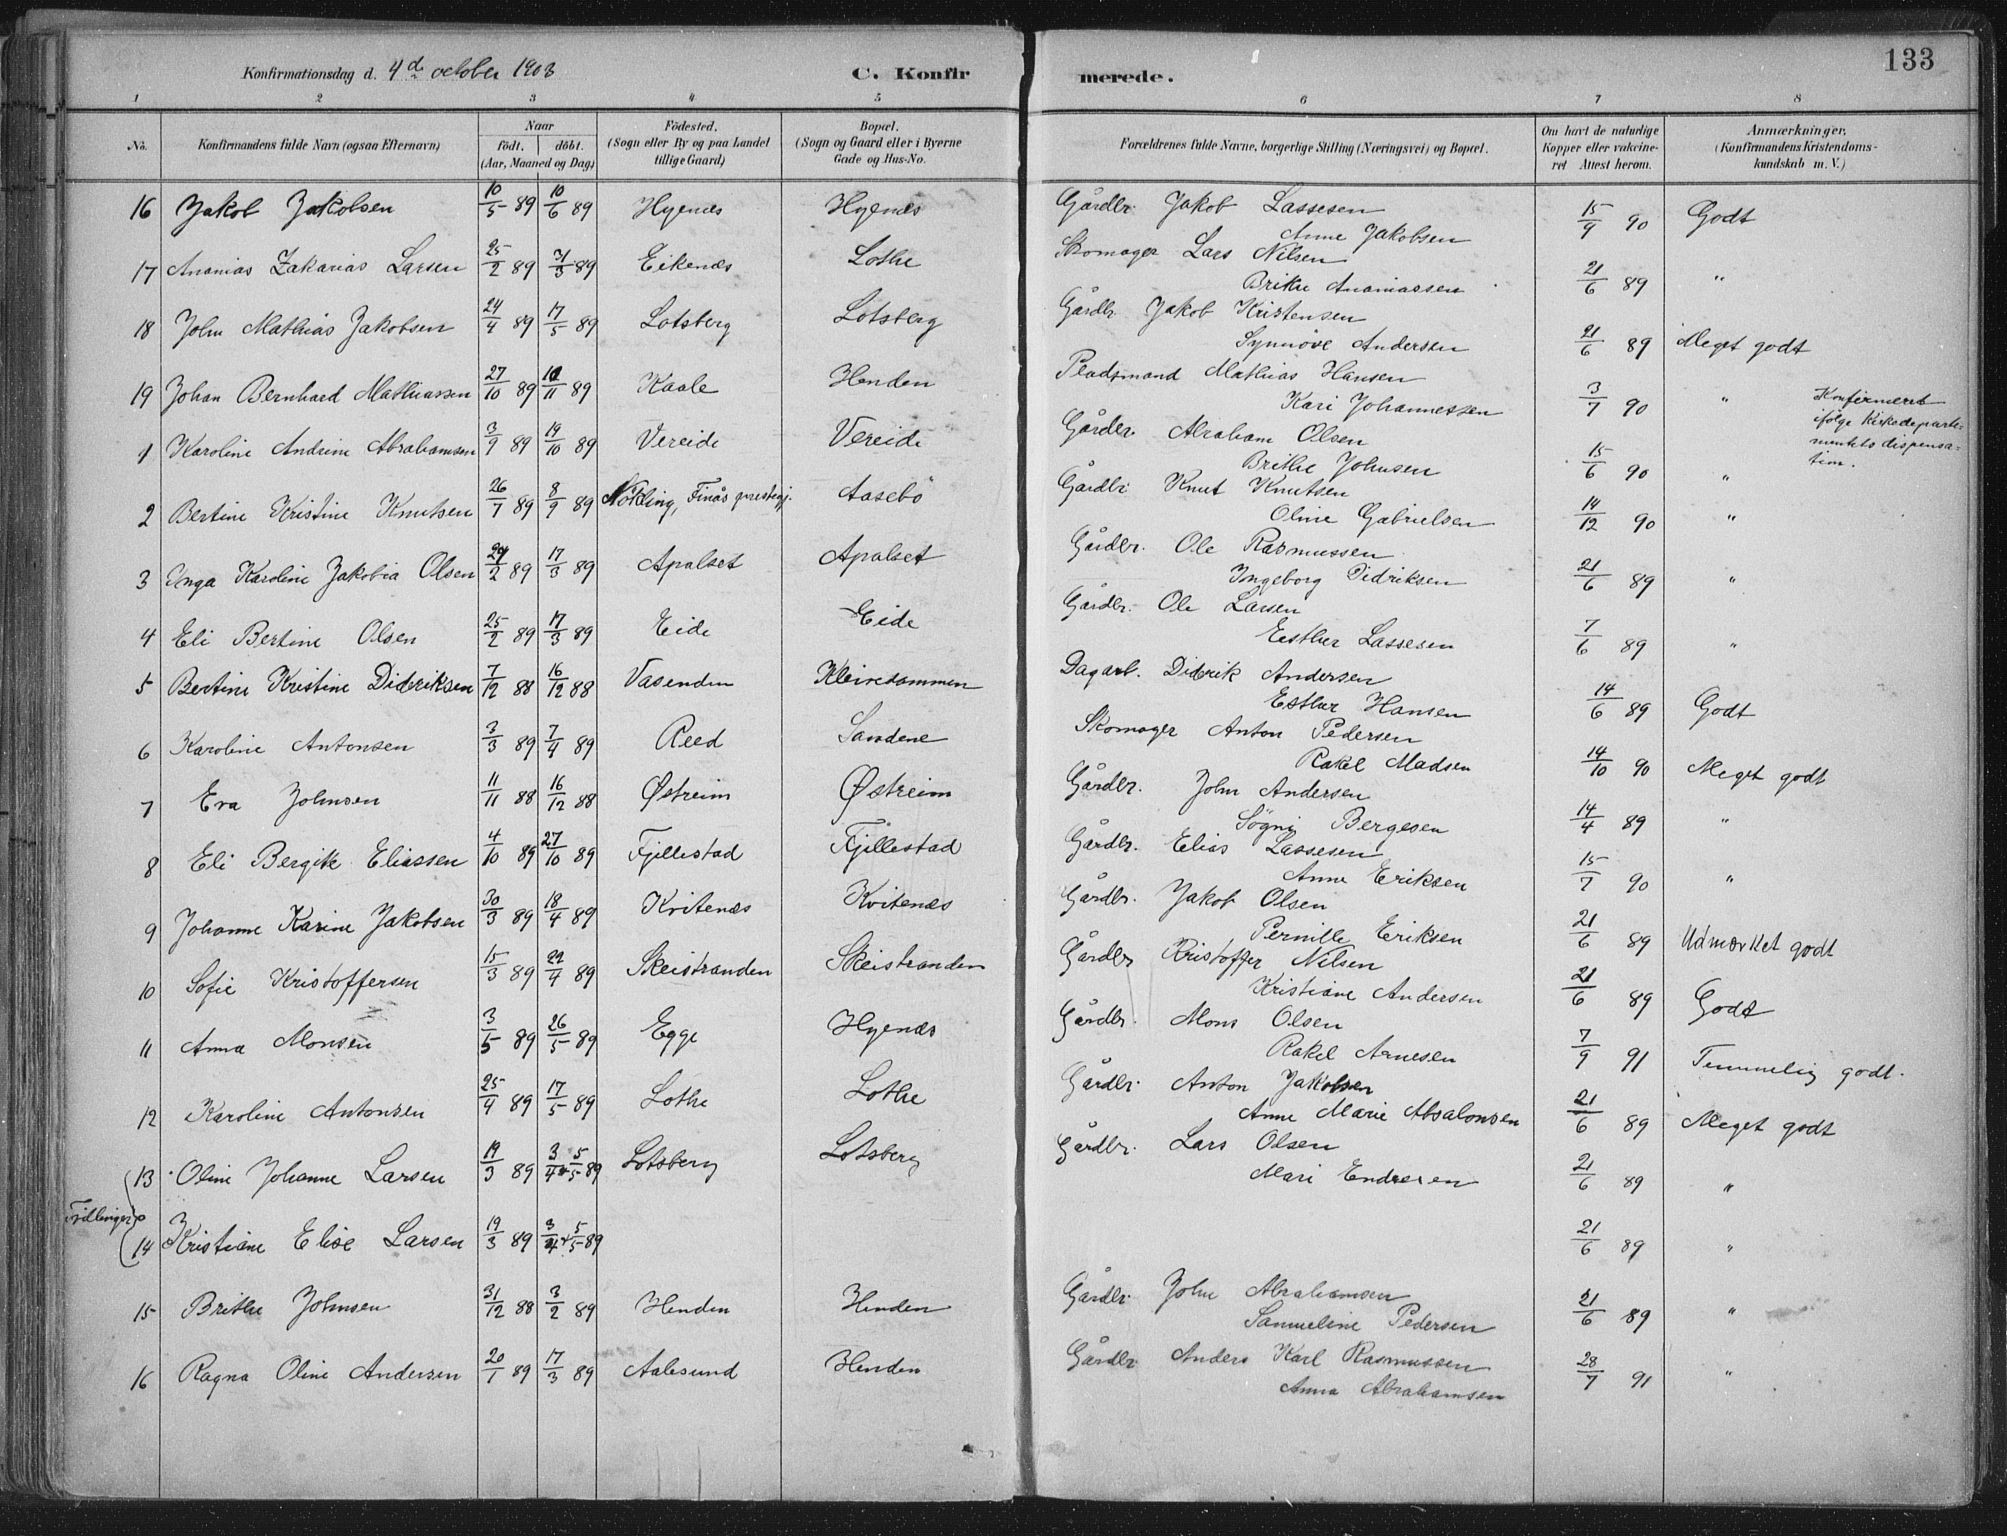 133
Konfirmationsdag d. 4de october 1903 C. Konfirmerede.
1 2 3 4 5 6 7 8
No. Konfirmandens fulde Navn (ogsaa Efternavn) Naar født. døbt. (Aar, Maaned og Dag) Fødested. (Sogn eller By og paa Landet tillige Gaard) Bopæl. (Sogn og Gaard eller i Byerne Gade og Hus-No. Forældrenes fulde Navne, borgerlige Stilling (Næringsvei) og Bopæl. Om havt de naturlige Kopper eller vakcineret Attest herom. Anmærkninger. (Konfirmandens Kristendomskundskab m. V.)
16 Jakob Jakobsen 10/5 89 10/6 89 Hyenes Hyenes Gårdbr. Jakob Lassesen 15/9 90 Godt
Anne Jakobsen
17 Ananias Zakarias Larsen 25/2 89 31/3 89 Eikenes Lothe Skomager Lars Nilsen 21/6 89 "
Brithe Ananiassen
18 John Mathias Jakobsen 24/4 89 17/5 89 Lotsberg Lotsberg Gårdbr. Jakob Kristensen 21/6 89 Meget godt
Synnöve Andersen
19 Johan Bernhard Mathiassen 27/10 89 10/11 89 Kaale Henden Pladsmand Mathias Hansen 3/7 90 " Konfirmeret ifölge Kirkedepartementets dispensation.
Kari Johannessen
1 Karoline Andrine Abrahamsen 3/9 89 19/10 89 Vereide Vereide Gårdbr. Abraham Olsen 15/6 90 "
Brithe Johnsen
2 Bertine Kristine Knutsen 26/7 89 8/9 89 Nökling, Finås prestegj. Aasebö Gårdbr. Knut Knutsen 14/12 90 "
Oline Gabrielsen
3 Inga Karoline Jakobia Olsen 24/2 89 17/3 89 Apalset Apalset Gårdbr. Ole Rasmussen 21/6 89 "
Ingeborg Didriksen
4 Eli Bertine Olsen 25/2 89 17/3 89 Eide Eide Gårdbr. Ole Larsen 7/6 89 "
Eesther Lassesen
5 Bertine Kristine Didriksen 7/12 88 16/12 88 Vasenden Kleivedammen Dagarb. Didrik Andersen 14/6 89 Godt
Esther Hansen
6 Karoline Antonsen 3/3 89 7/4 89 Reed Sandene Skomager Anton Pedersen 14/10 90 Meget godt
Rakel Madsen
7 Eva Johnsen 11/11 88 16/12 88 Østreim Østreim Gårdbr. John Andersen 14/4 89 "
Sögni Bergesen
8 Eli Bergite Eliassen 4/10 89 27/10 89 Fjellestad Fjellestad Gårdbr. Elias Lassesen 15/7 90 "
Anne Eriksen
9 Johanne Karine Jakobsen 30/3 89 18/4 89 Kvitenes Kvitenes Gårdbr. Jakob Olsen 21/6 89 Udmærket godt
Pernille Eriksen
10 Sofie Kristoffersen 15/3 89 22/4 89 Skeistranden Skeistranden Gårdbr Kristoffer Nilsen 21/6 89 Godt
Kristiane Andersen
11 Anna Monsen 3/5 89 26/5 89 Egge Hyenes Gårdbr. Mons Olsen 7/9 91 Temmelig godt.
Rakel Arnesen
12 Karoline Antonsen 25/4 89 17/5 89 Lothe Lothe Gårdbr. Anton Jakobsen 21/6 89 Meget godt
Anne Marie Absalonsen
13 Oline Johanne Larsen 19/3 89 3/4 + 5/5 89 Lotsberg Lotsberg Gårdbr. Lars Olsen 21/6 89 "
Mari Endresen
Tvillinger
14 Kristiane Elise Larsen 19/3 89 3/4 + 5/5 89 21/6 89 "
15 Brithe Johnsen 31/12 88 3/2 89 Henden Henden Gårdbr. John Abrahamsen 21/6 89 "
Samueline Pedersen
16 Ragna Oline Andersen 20/1 89 17/3 89 Aalesund Henden Gårdbr. Anders Karl Rasmussen 28/7 91 "
Anna Abrahamsen